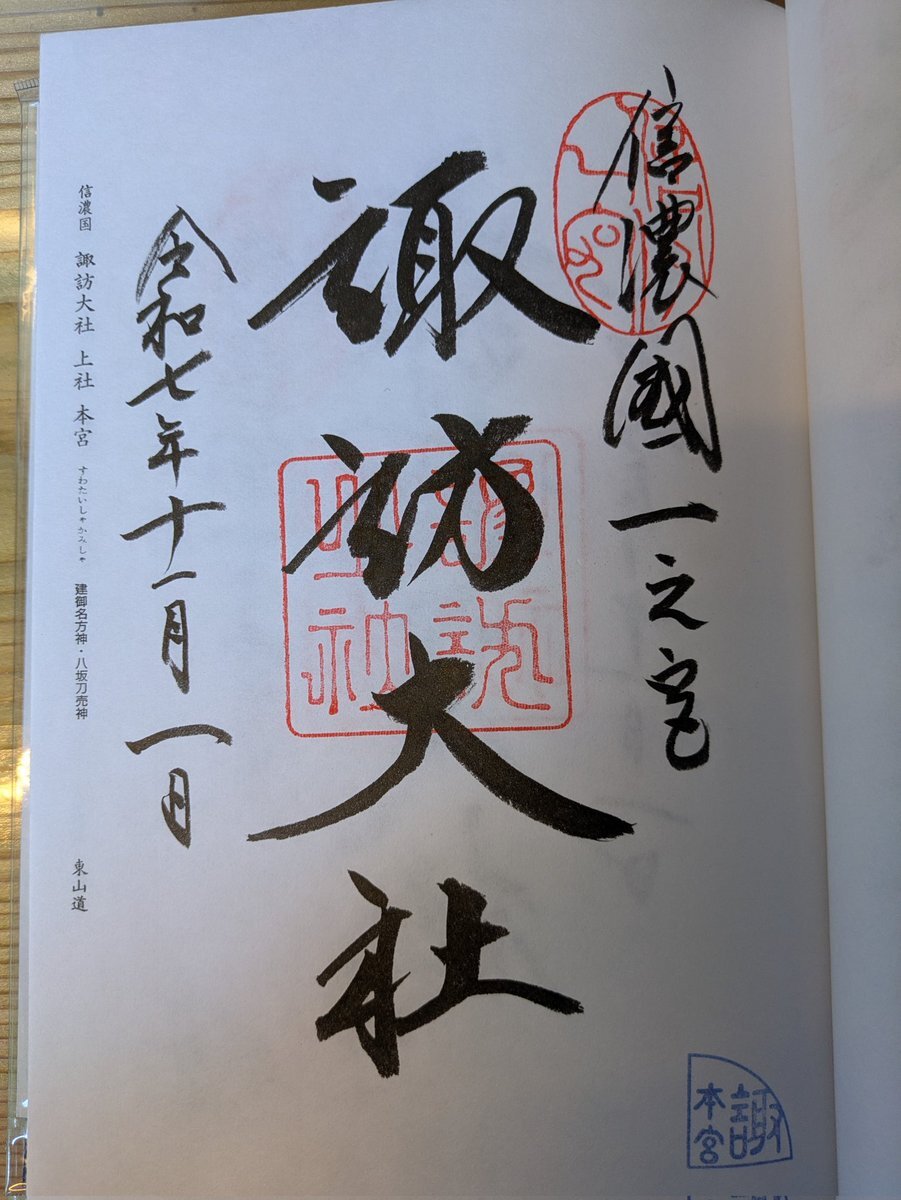 信濃國一之宮
諏訪大社
令和七年十一月一日
信濃国 諏訪大社 上社 本宮 すわたいしゃかみしゃ 建御名方神・八坂刀売神 東山道
諏
本宮